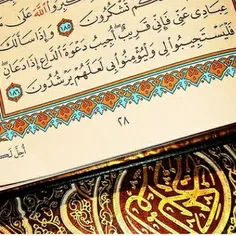 اللَّهَ
تَشْكُرُونَ ١٨٥ وَإِذَا سَأَلَكَ
عِبَادِي عَنِّي فَإِنِّي قَرِيبٌ ۖ أُجِيبُ دَعْوَةَ الدَّاعِ إِذَا دَعَانِ ۖ
فَلْيَسْتَجِيبُوا لِي وَلْيُؤْمِنُوا بِي لَعَلَّهُمْ يَرْشُدُونَ ١٨٦
٢٨
أُحِلَّ